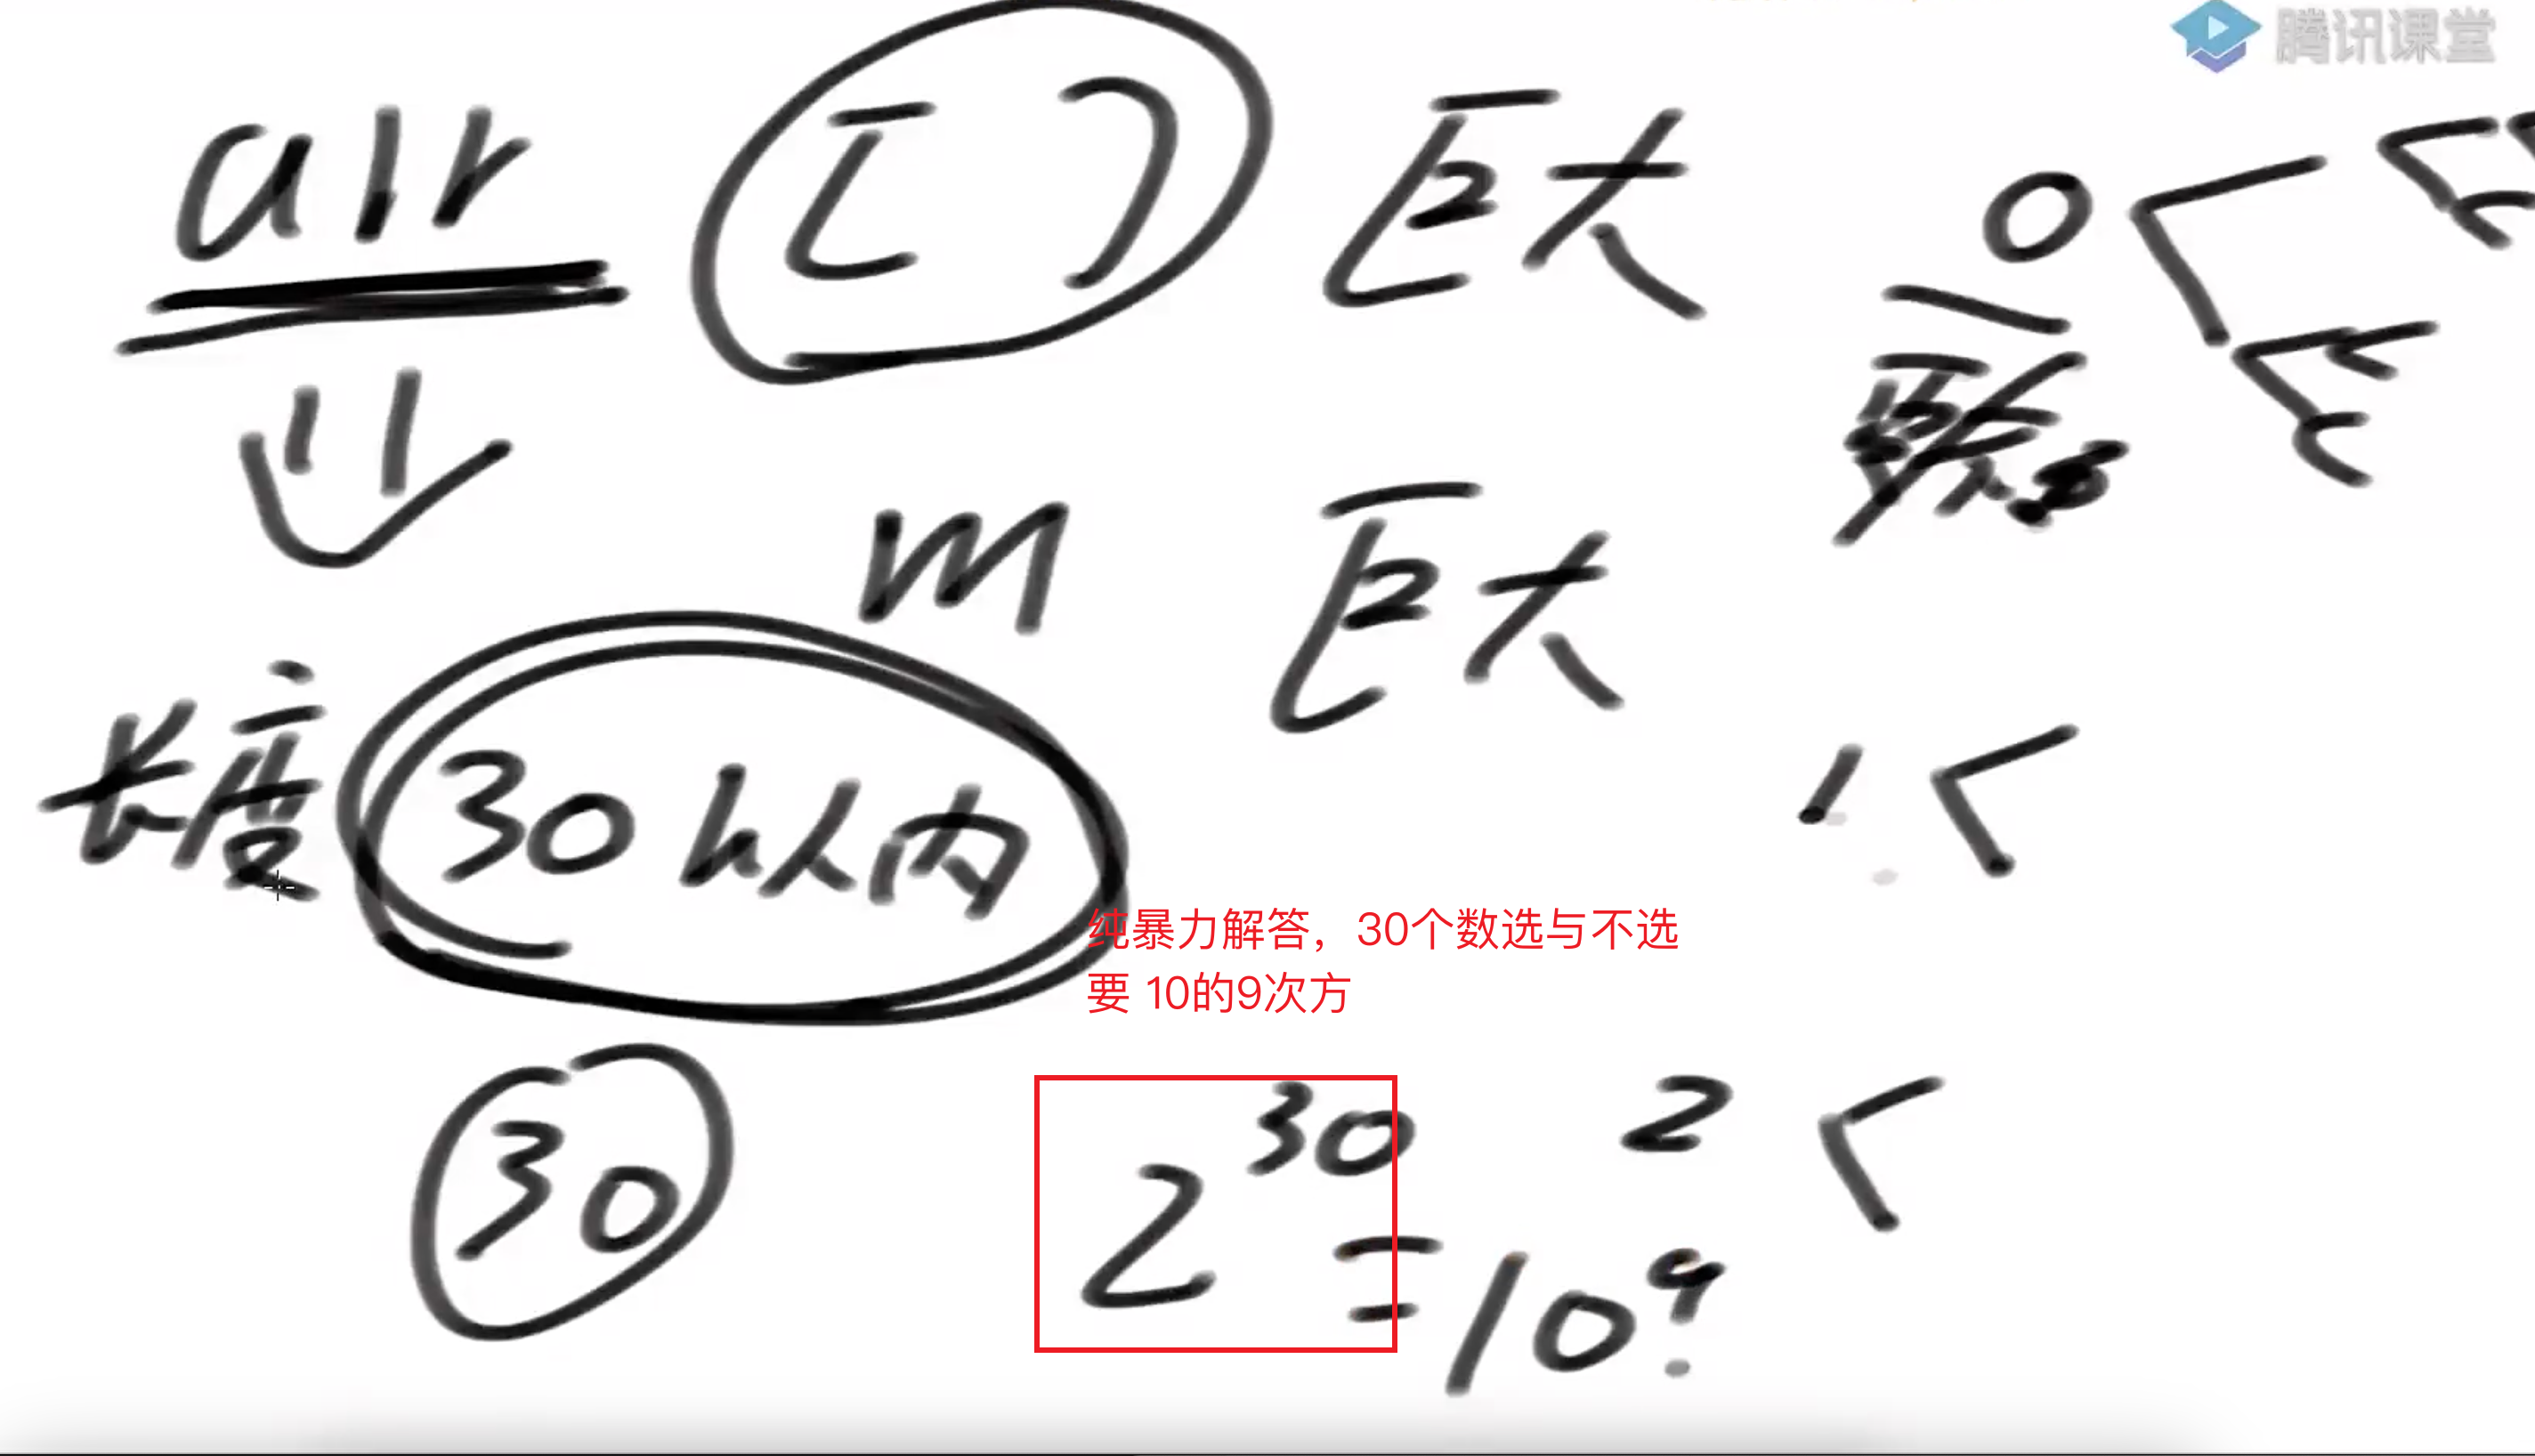 腾讯课堂
arr [ ] 巨大 0
m 巨大
长度 30以内 1
纯暴力解答，30个数选与不选
要 10的9次方
30 2^30 2
= 10^9